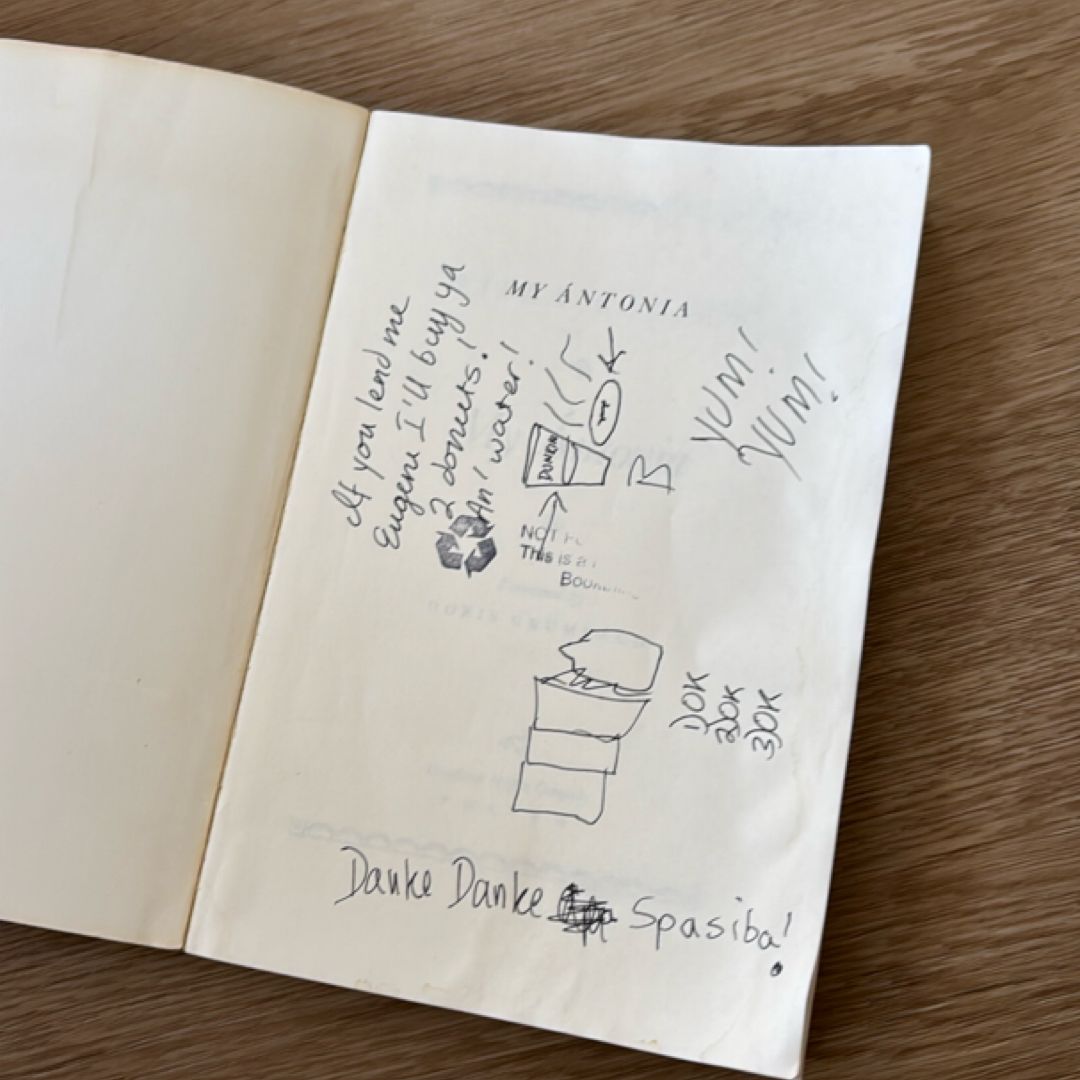 MY ÁNTONIA
If you lend me
Eugene I'll buy ya
2 donuts!
An' water!
DUNKIN
B
YUM!
YUM!
NOT
This is a
1) OK
2) OK
3) OK
Danke Danke Spasiba!